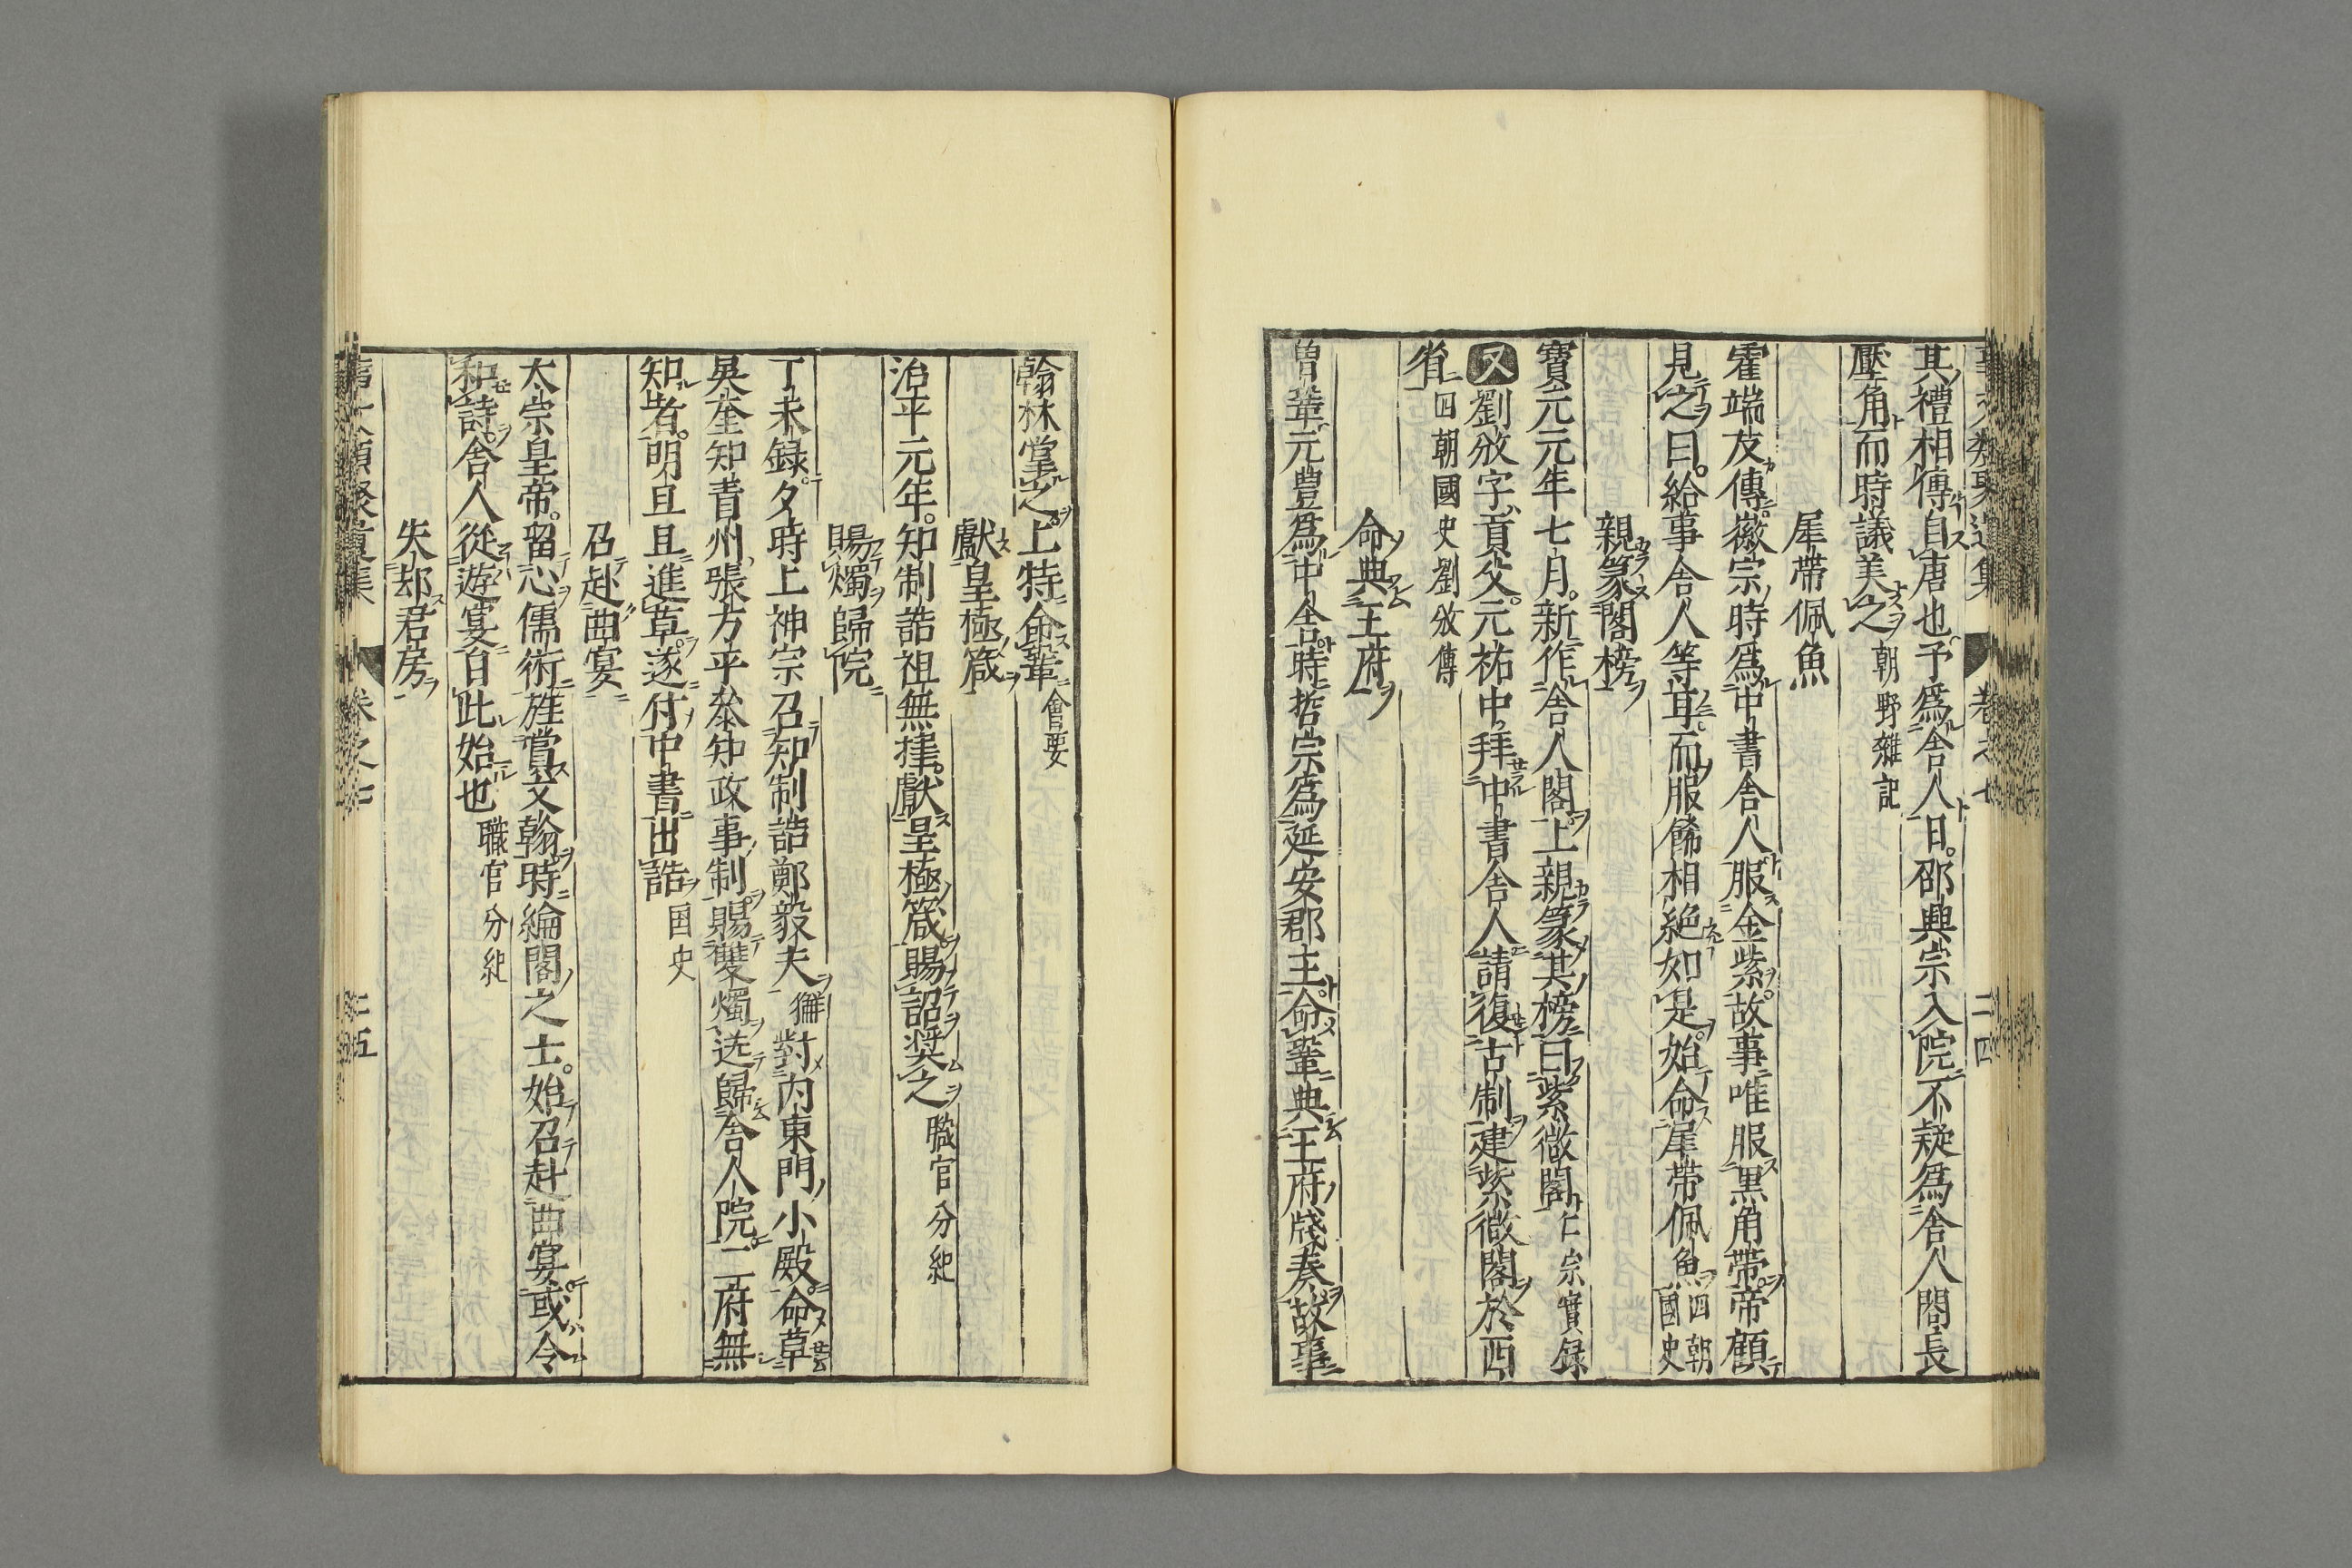 其禮相傳自唐也予爲舍人日邵興宗入院不疑爲舍人閤長
壓角而時議美之朝野雜記
犀帶佩魚
霍端友傳徽宗時爲中書舍人服金紫故事唯服黒角帶帝顧
見之曰給事舍人等耳而服餙相絶如是始命犀帶佩魚四朝國史
親篆閣榜
寶元元年七月新作舍人閣上親篆其榜曰紫微閣仁宗實録
又劉攽字貢父元祐中拜中書舍人請復古制建紫微閣於西
省四朝國史劉攽傳
命典王府
曽鞏元豊爲中舎時哲宗爲延安郡主命鞏典王府牋奏故事
翰林掌之上特命鞏會要
獻皇極箴
治平元年知制誥祖無擇獻皇極箴賜詔奨之職官分紀
賜燭歸院
丁未録夕時上神宗召知制誥鄭毅夫獬對内東門小殿命草
吳奎知青州張方平叅知政事制賜雙燭送歸舍人院二府無
知者明旦且進草遂付中書出誥国史
召赴曲宴
太宗皇帝留心儒術旌賞文翰時綸閣之士始召赴曲宴或令
和詩舎人從遊宴自此始也職官分紀
失却君房
卷之七
二五